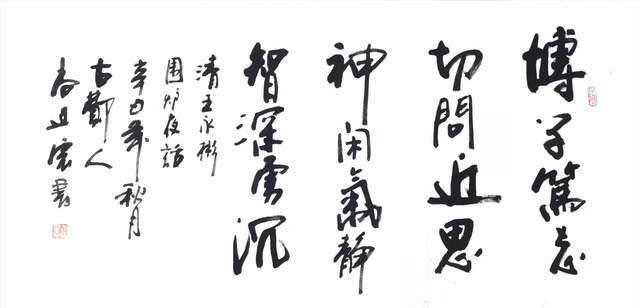 博学篤志
切問近思
神闲氣静
智深勇沉
清王永彬
围炉夜話
辛丑年秋月
古人
書